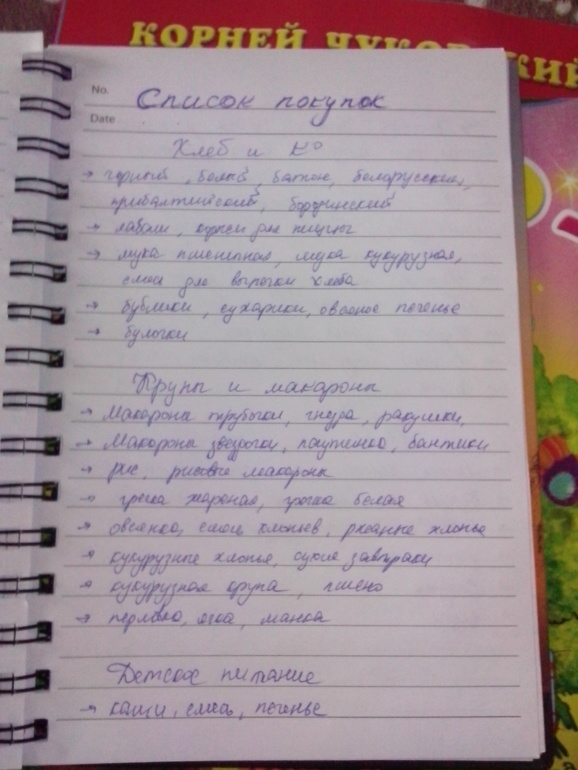 КОРНЕЙ ЧУКОВСКИЙ
No.
Список покупок
Date
Хлеб и К°
→ чёрный, белый, батон, белорусский,
прибалтийский, бородинский
→ лаваш, коржи для пиццы
→ мука пшеничная, мука кукурузная,
смесь для выпечки хлеба
→ бублики, сухарики, овсяное печенье
→ булочки
Крупы и макароны
→ Макароны трубочки, ракушки,
→ Макароны звёздочки, паутинка, бантики
→ рис, рисовые макароны
→ греча жареная, греча белая
→ овсянка, смесь хлопьев, ржаные хлопья
→ кукурузные хлопья, сухие завтраки
→ кукурузная крупа, пшено
→ перловка, ячка, манка
Детское питание
→ каши, смесь, печенье